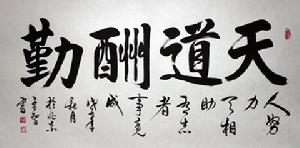 天道酬勤
人努
力
天相
助
有志
者
事竟
成
年
秋月
於北京
書